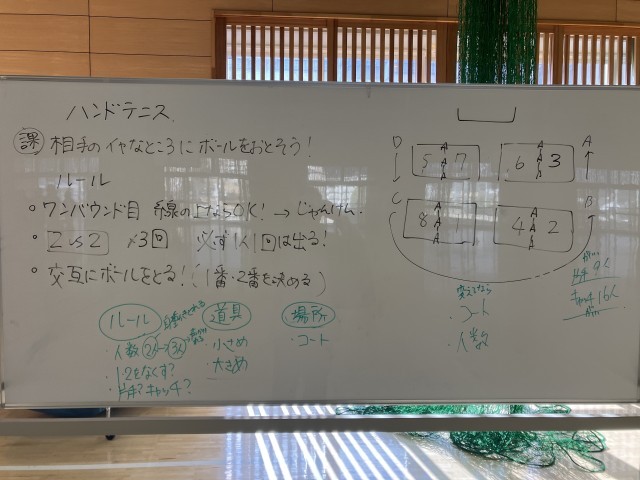 ハンドテニス
課 相手のイヤなところにボールをおとそう!
ルール
・ワンバウンド目 線の上ならOK! → じゃんけん
・2vs2 ×3回 必ず1人1回は出る!
・交互にボールをとる!(1番・2番を決める)
ルール
・人数 2人→3人
・1・2をなくす?
・片手?キャッチ?
道具
・小さめ
・大きめ
場所
・コート
D 5 7 6 3 A
C 8 1 4 2 B
変えてなら
・コート
・人数
片手 9く
キャッチ 16く